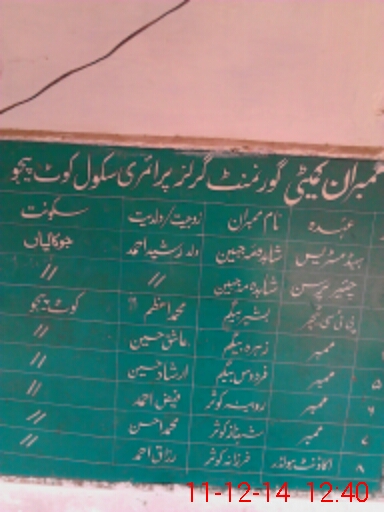 ممبران کمیٹی گورنمنٹ گرلز پرائمری سکول کوٹ پیجو
عہدہ نام ممبران زوجیت/ولدیت سکونت
ہیڈ مسٹریس شاہدہ مہ جبین ولد رشید احمد جوکالیاں
چیئر پرسن شاہدہ مہ جبین // //
پی ٹی سی ٹیچر بشیر بیگم محمد اعظم کوٹ پیجو
ممبر زہرہ بیگم عاشق حسین //
۵ ممبر فردوس بیگم ارشاد حسین //
۶ ممبر روبینہ کوثر فیض احمد //
۷ ممبر شہناز کوثر محمد احسن //
۸ اکاؤنٹ ہولڈر فرزانہ کوثر رزاق احمد //
11-12-14 12:40